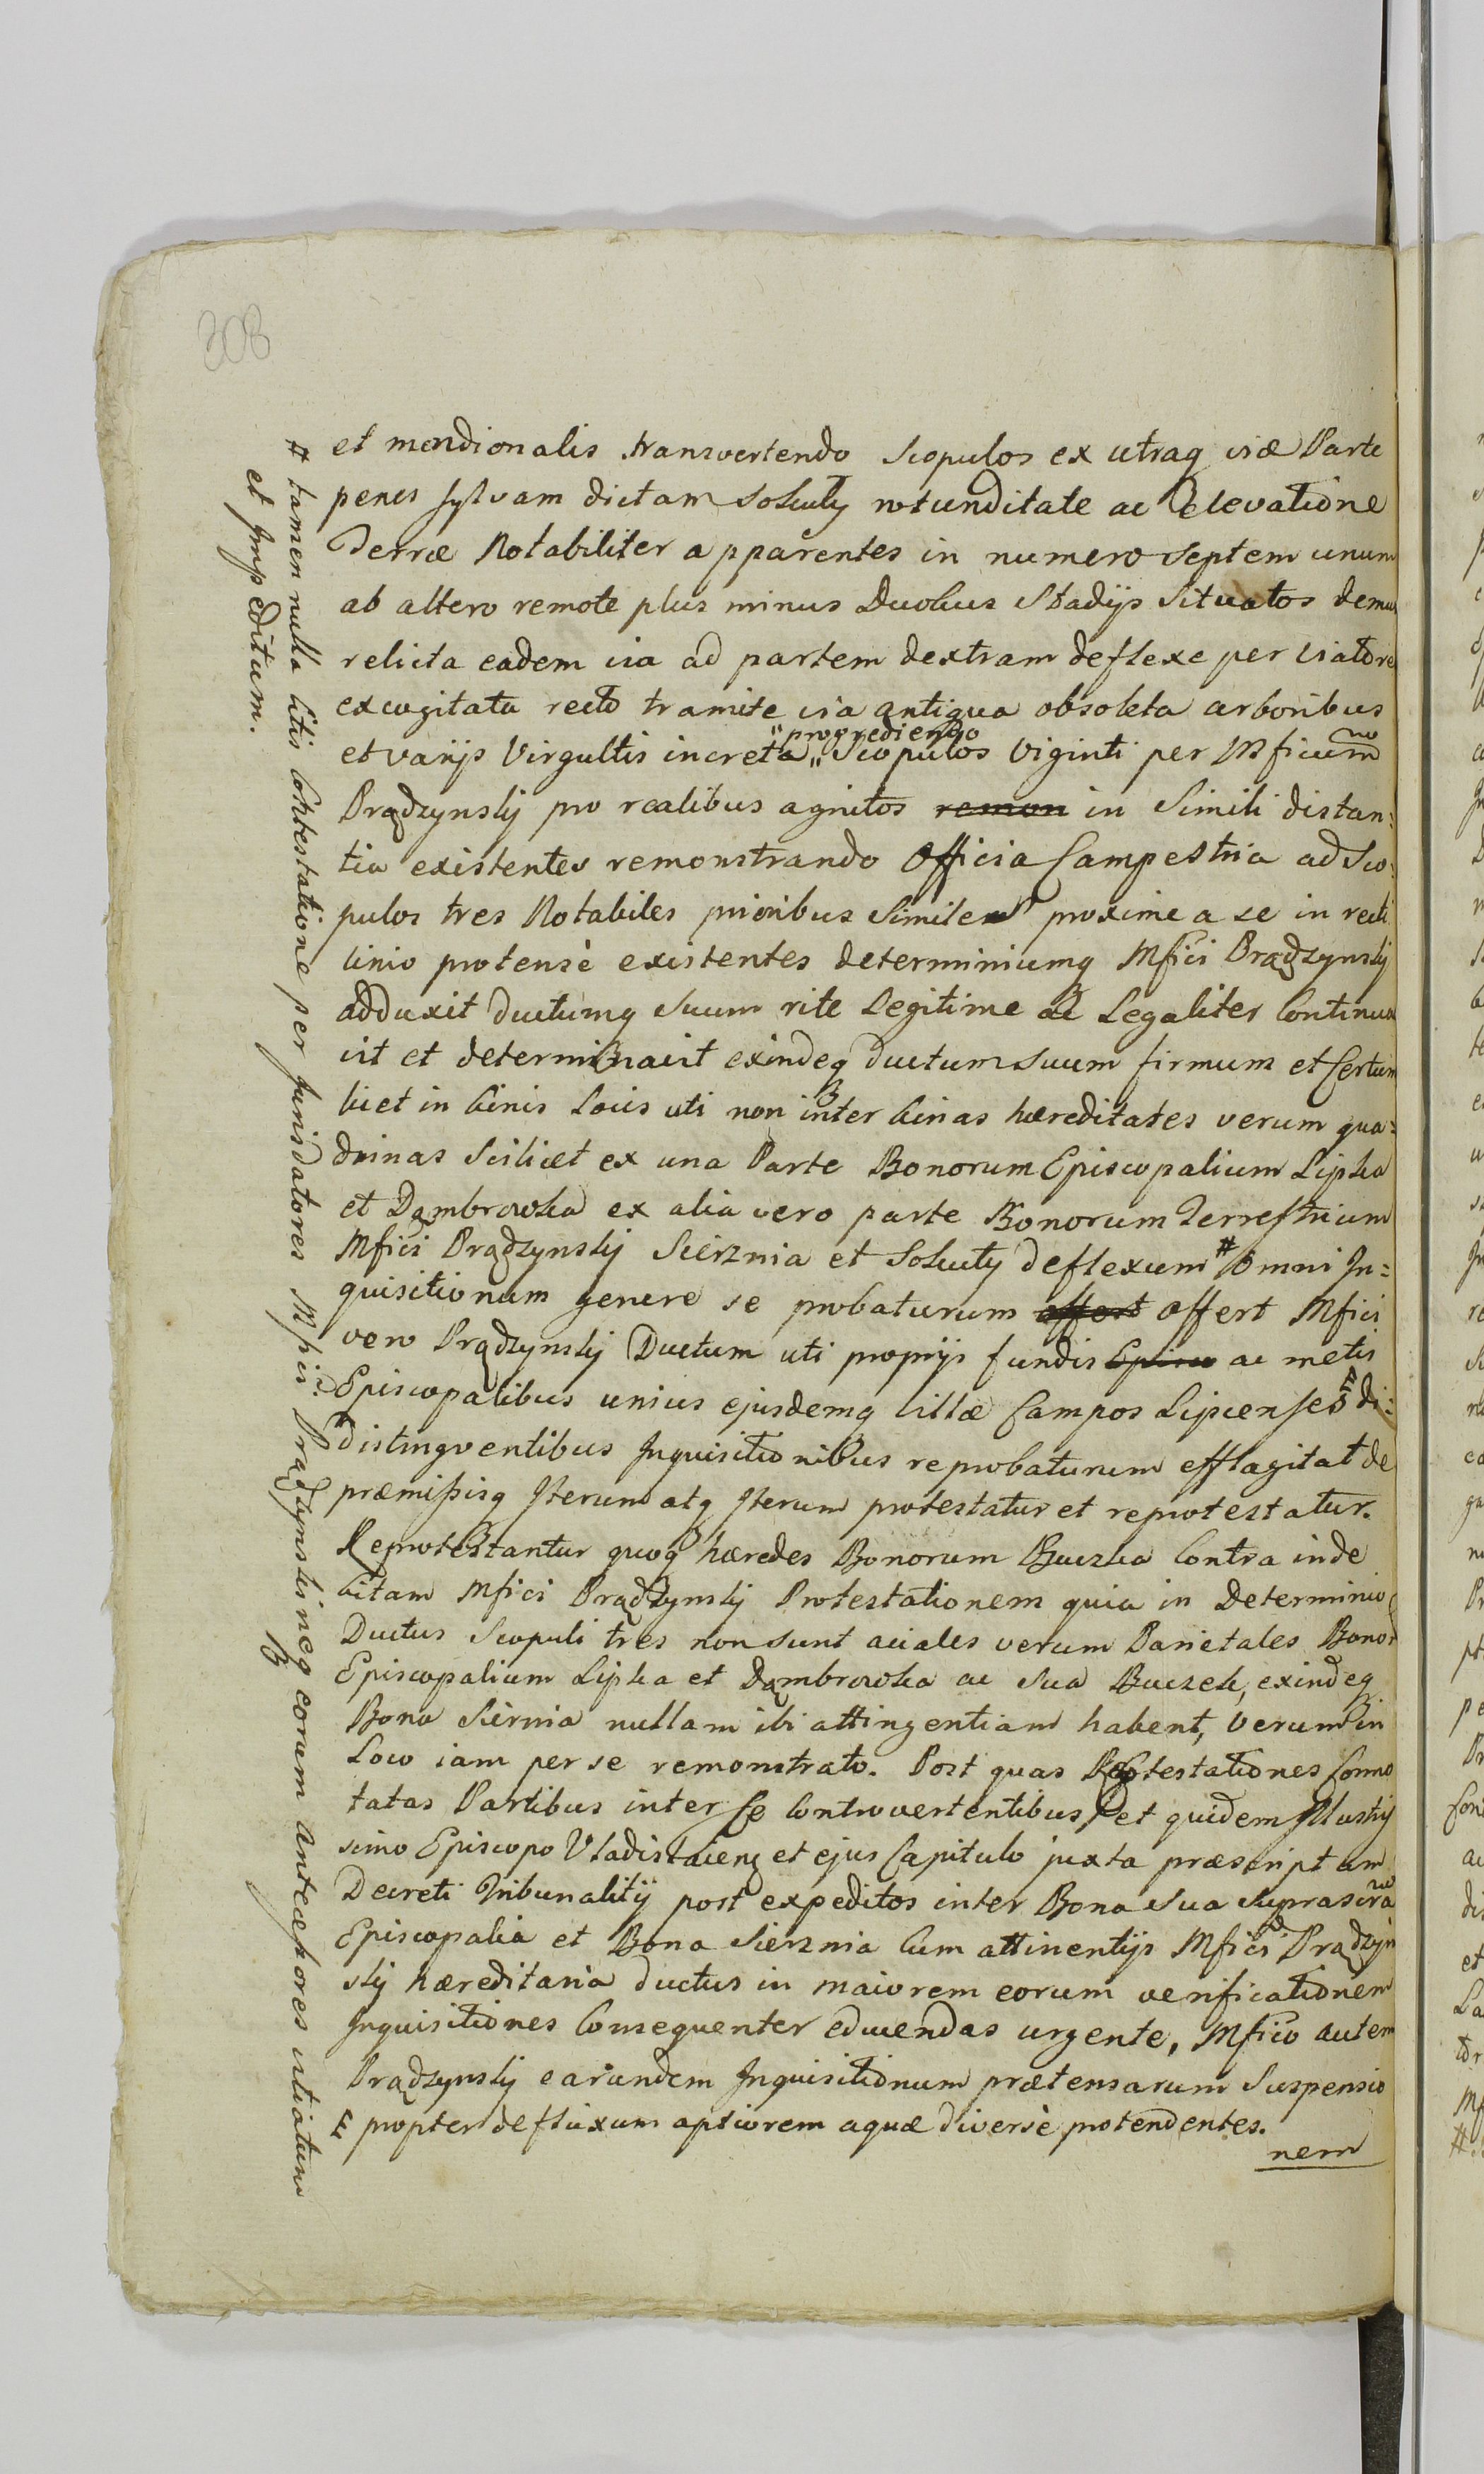 308
et meridionalis transvertendo Scopulos ex utraq viæ Parte
penes sylvam dictam Sokuty rotunditate ac Elevatione
Terræ Notabiliter apparentes in numero Septem unum
ab altero remote plus minus Duobus Stadijs Situatos demu
relicta eadem via ad partem dextram deflexe per viatore
excogitata recto tramite via antiqua obsoleta arboribus
et varijs Virgultis increta „progrediendo„ Scopulos Viginti per Mficum
Prądzynskj pro realibus agnitos remon in Simili distan:
tia existentes remonstrando Officia Campestria ad Sco:
pulos tres Notabiles prioribus Similes proxime a se in recti
linio protensè existentes determiniumq Mfici Prądzynskj
adduxit ductumq Suum rite Legitime ac Legaliter Continua
vit et determinavit exindeq ductum suum firmum et Certum
licet in binis Locis uti non inter binas hæreditates verum qua:
drinas Scilicet ex una Parte Bonorum Episcopalium Lipka
et Dąmbrowka ex alia vero parte Bonorum Terrestrium
Mfici Prądzynskj Sierznia et Sokuty deflexum # omni In=
quisitionum genere se probaturum offert offert Mfici
vero Prądzynskj Ductum uti proprijs fundis Episco ac metis
Episcopalibus unius ejusdemq Villæ Campos Lipcenses di:
distingventibus Inquisitionibus reprobaturum efflagitat de
præmissisq Iterum atq Iterum protestatur et reprotestatur.
Reprotestantur quoq hæredes Bonorum Buczka Contra inde
bitam Mfici Prądzynskj Protestationem quia in Determinio
Ductus Scopuli tres non sunt aciales verum Parietales Bonor
Episcopalium Lipka et Dąmbrowka ac Sua Buczek, exindeq
Bona Siernia nullam ibi attingentiam habent, Verum in
Loco iam per se remonstrato. Post quas Protestationes Conno
tatas Partibus inter se Controvertentibus et quidem Illustris
simo Episcopo Vladislavienq et ejus Capitulo juxta præscriptum
Decreti Tribunalitij post expeditos inter Bona Sua Suprascra
Episcopalia et Bona Sierznia Cum attinentijs Mfici Prądzyn
skj hæreditaria ductus in maiorem eorum verificationem
Inquisitiones Consequenter educendas urgente, Mfico autem
Prądzynskj earundem Inquisitionum prætensarum Suspensio
propter defluxum aptiorem aquæ diversè protendentes.
nem
# tamen nulla litis Contestatione per Jurisdatores Mfici Prądzynski neq eorum Antecessores vitiatum
et Impeditum.